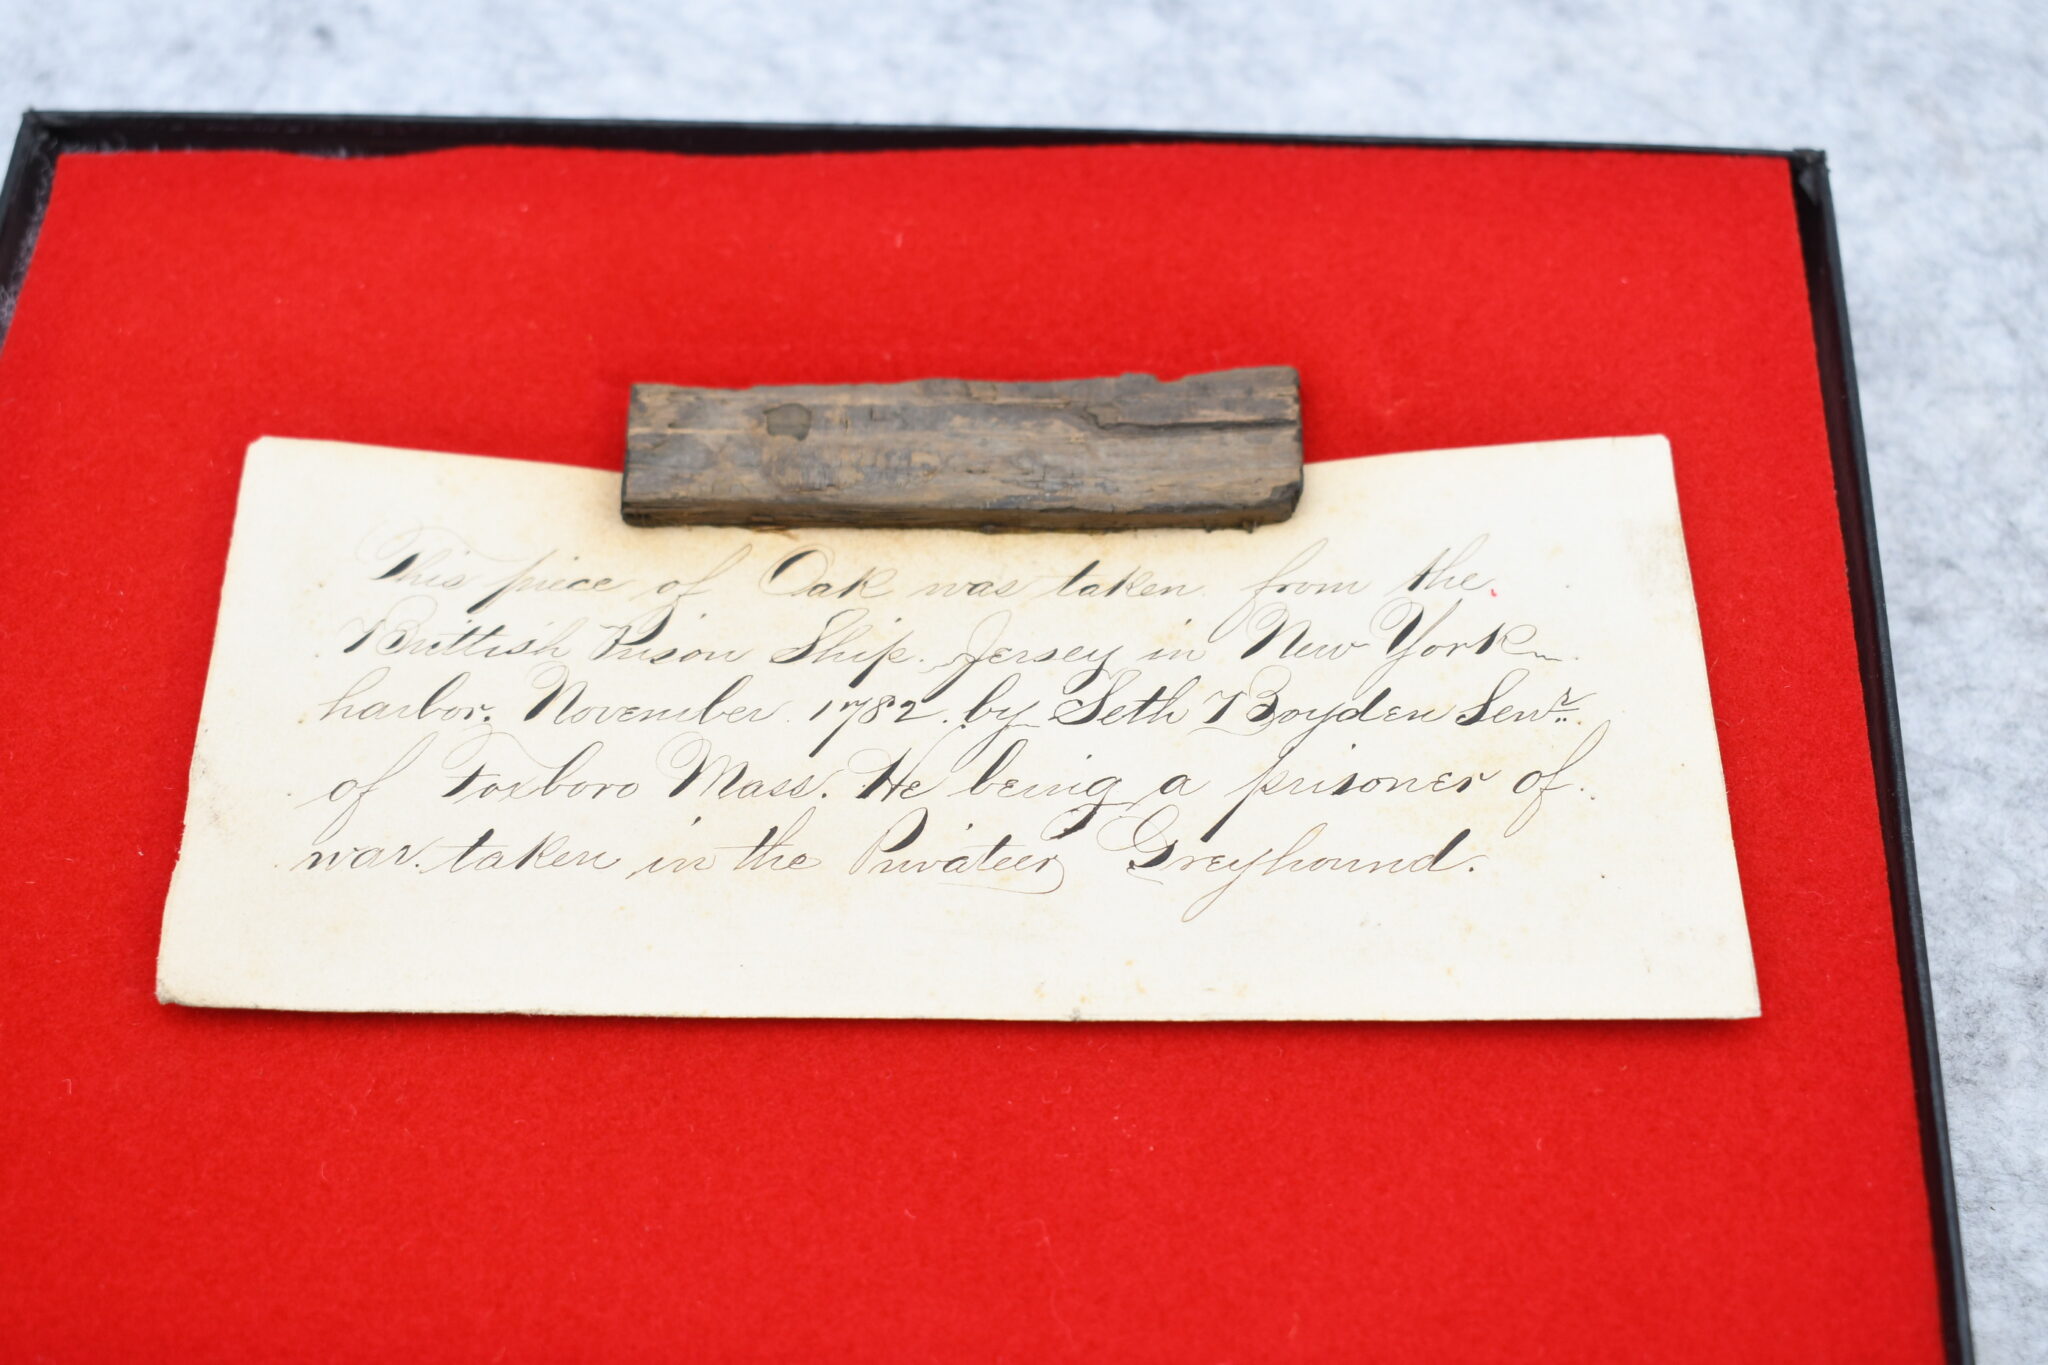 This piece of Oak was taken from the
Brittish Prison Ship. Jersey in New York
harbor. November 1782. by Seth Boyden Senr.
of Foxboro Mass. He being a prisoner of
war. taken in the Privateer Greyhound.